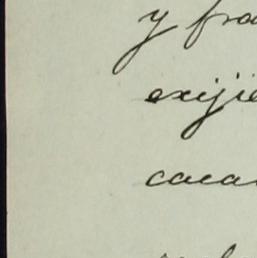 y fra
exijie
cacao